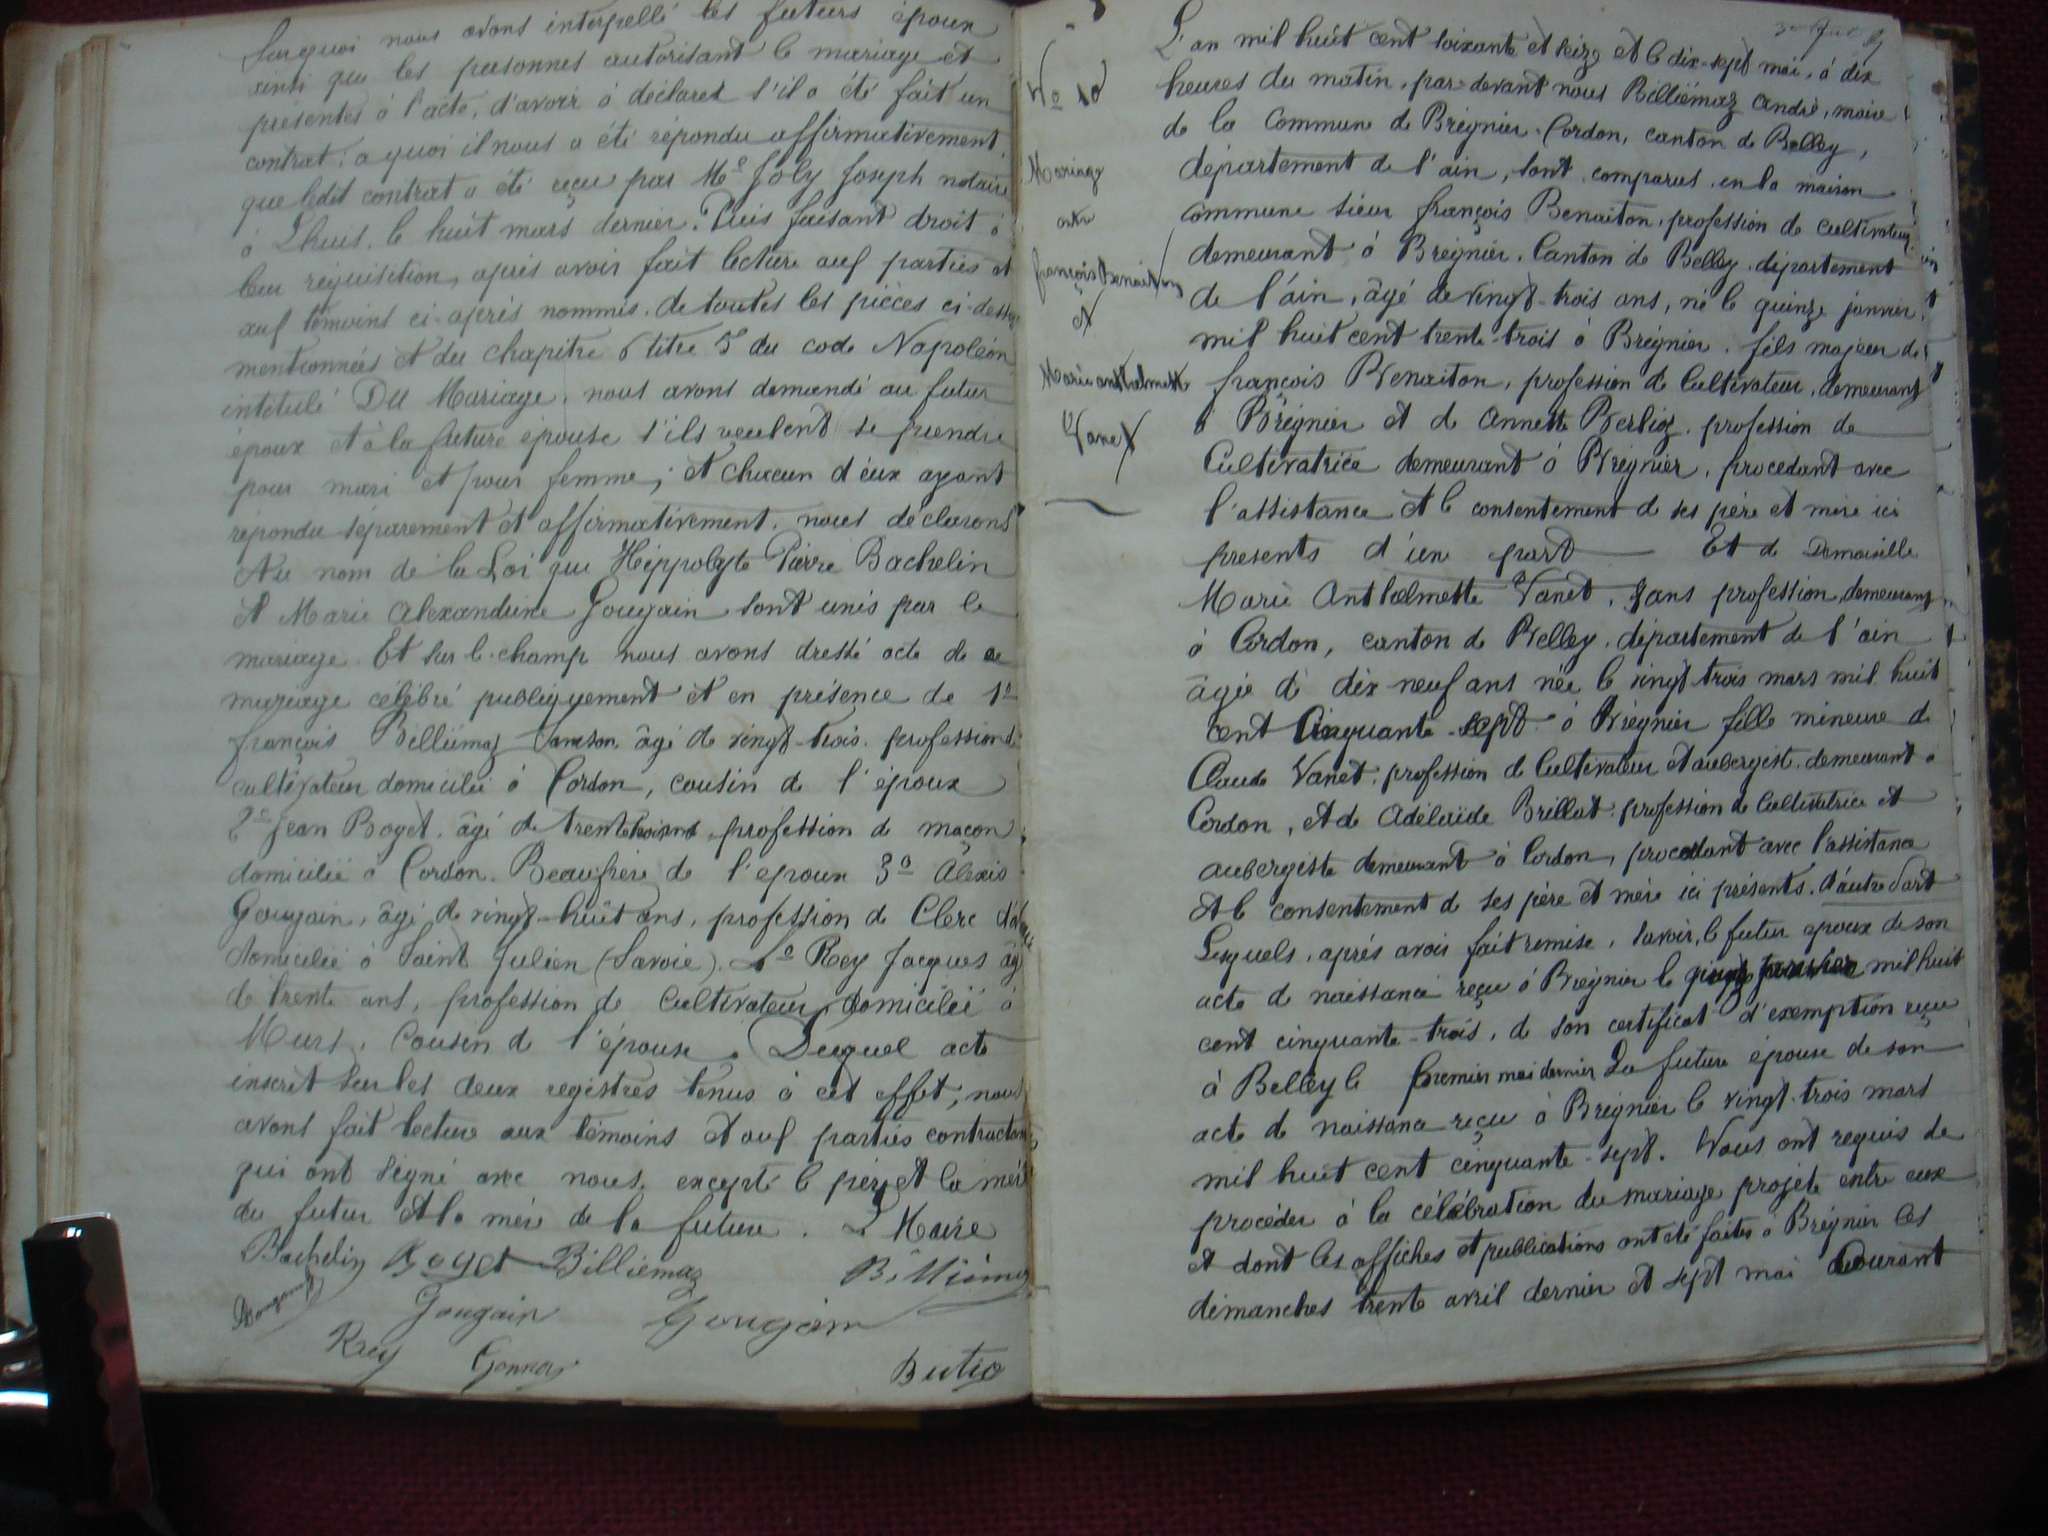 Sur quoi nous avons interpellé les futurs époux
ainsi que les personnes autorisant le mariage et
présentes à l'acte, d'avoir à déclarer s'il a été fait un
contrat, a quoi il nous a été répondu affirmativement
que ledit contrat a été reçu par Me Joly Joseph notaire
à Lhuis, le huit mars dernier. Puis faisant droit à
leur réquisition, après avoir fait lecture aux parties et
aux témoins ci-après nommés, de toutes les pièces ci-dessus
mentionnées et du chapitre 6 titre 5 du code Napoléon
intitulé Du Mariage, nous avons demandé au futur
époux et à la future épouse s'ils veulent se prendre
pour mari et pour femme; et chacun d'eux ayant
répondu séparement et affirmativement, nous déclarons
Au nom de la Loi que Hippolyte Pierre Bachelin
et Marie Alexandrine Gougain sont unis par le
mariage. Et sur le champ nous avons dressé acte de ce
mariage célébré publiquement et en présence de 1o
françois Billiémaz Samson âgé de vingt-trois, profession de
cultivateur domicilié à Cordon, cousin de l'époux
2o Jean Boget, âgé de trente profession de maçon
domicilié à Cordon. Beaufrère de l'époux 3o Alexis
Gougain, âgé de vingt-huit ans, profession de Clerc
domicilié à Saint Julien (Savoie). 4o Rey Jacques âgé
de trente ans, profession de cultivateur domicilié à
Murs, Cousin de l'épouse. Duquel acte
inscrit sur les deux registres tenus à cet effet, nous
avons fait lecture aux témoins et aux parties contractantes
qui ont signé avec nous, excepté le père et la mère
du futur et la mère de la future. Le Maire
Bachelin Boget Billiemaz Billiémaz
Gougain Gougain
Rey Gonnas
N° 10
Mariage
entre
françois Benaiton
et
Marie anthelmette
Vanet
L'an mil huit cent soixante et seize et le dix-sept mai, à dix
heures du matin, par-devant nous Billiémaz André, maire
de la Commune de Brégnier-Cordon, canton de Belley,
département de l'ain, sont comparus en la maison
commune sieur françois Benaiton, profession de cultivateur
demeurant à Brégnier, Canton de Belley, département
de l'ain, âgé de vingt-trois ans, né le quinze janvier
mil huit cent trente-trois à Brégnier, fils majeur de
françois Benaiton, profession de Cultivateur, demeurant
à Brégnier et de Annette Berlioz, profession de
Cultivatrice demeurant à Brégnier, procedant avec
l'assistance et le consentement de ses père et mère ici
presents d'une part Et de Demoiselle
Marie Anthelmette Vanet, sans profession, demeurant
à Cordon, canton de Belley, département de l'ain
âgée de dix neuf ans née le vingt-trois mars mil huit
cent Cinquante-sept à Brégnier fille mineure de
Claude Vanet, profession de Cultivateur et aubergiste, demeurant à
Cordon, et de Adélaïde Brillat, profession de Cultivatrice et
aubergiste demeurant à Cordon, procedant avec l'assistance
et le consentement de ses père et mère ici présents, d'autre Part
Lesquels, après avoir fait remise, savoir, le futur époux de son
acte de naissance reçu à Brégnier le mil huit
cent cinquante-trois, de son certificat d'exemption reçu
à Belley le premier mai dernier La future épouse de son
acte de naissance reçu à Brégnier le vingt-trois mars
mil huit cent cinquante-sept. Nous ont requis de
procéder à la célébration du mariage projeté entre eux
et dont les affiches et publications ont été faites à Brégnier les
dimanches trente avril dernier et sept mai Courant